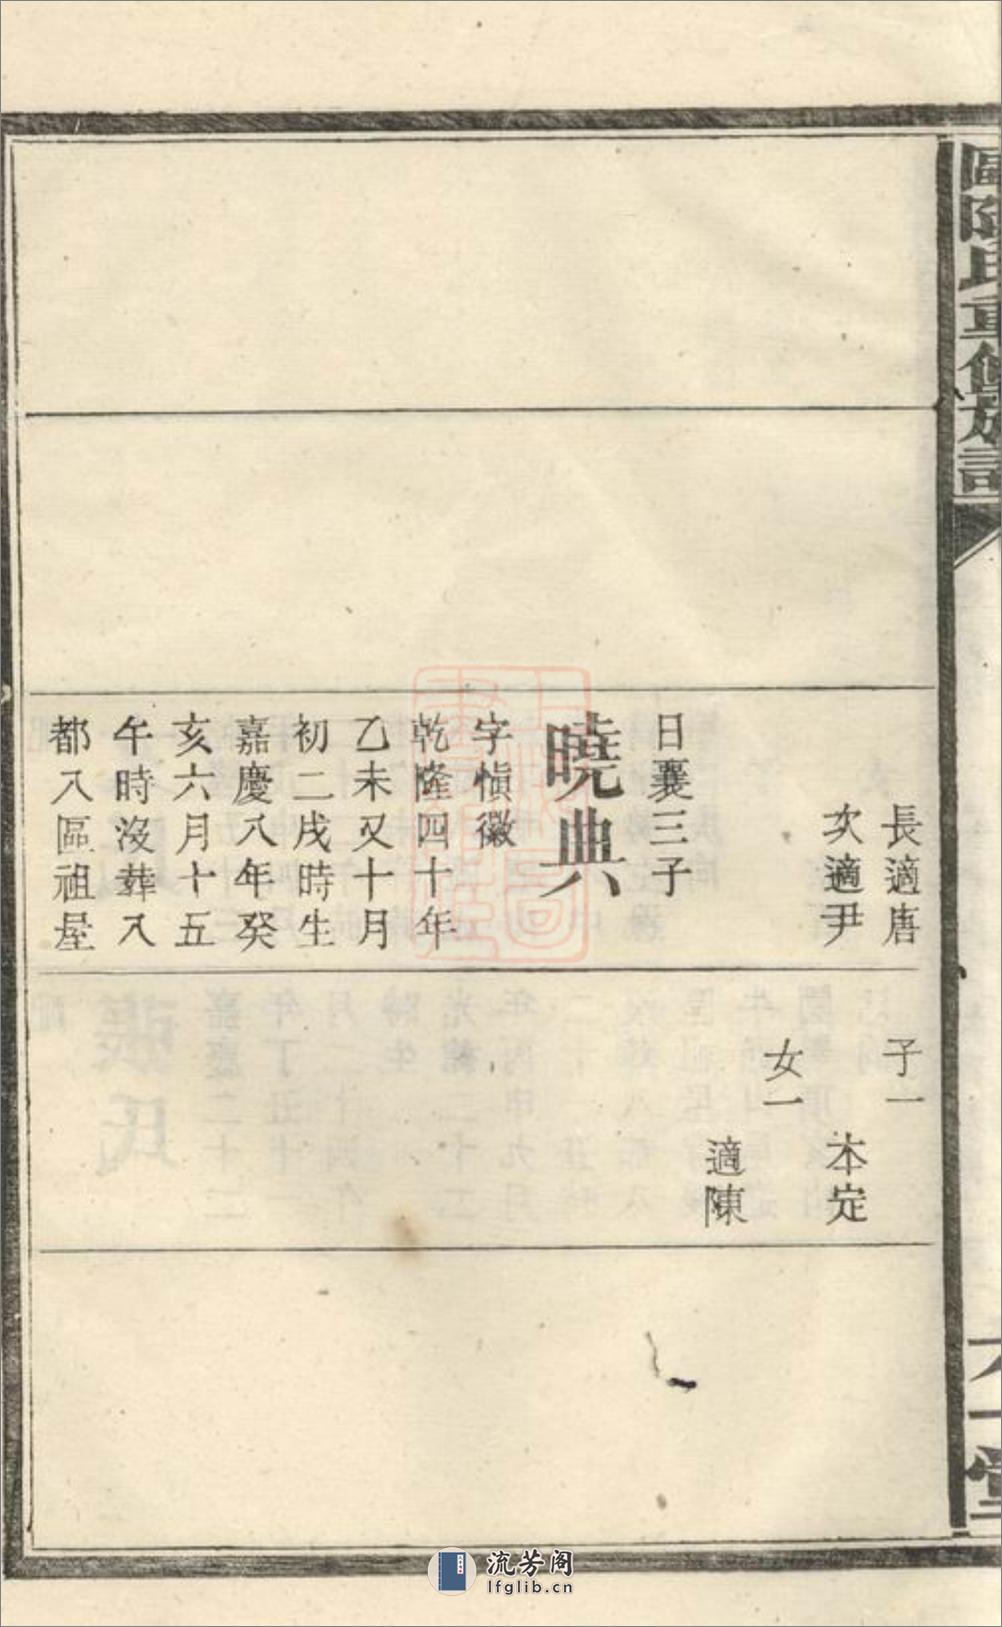 歐陽氏重修族譜
六一堂
長適唐
次適尹
日襄三子
曉典
字愼徽
乾隆四十年
乙未又十月
初二戌時生
嘉慶八年癸
亥六月十五
午時沒葬入
都入區祖屋
子一
本定
女一
適陳
流芳阁
lfglib.cn